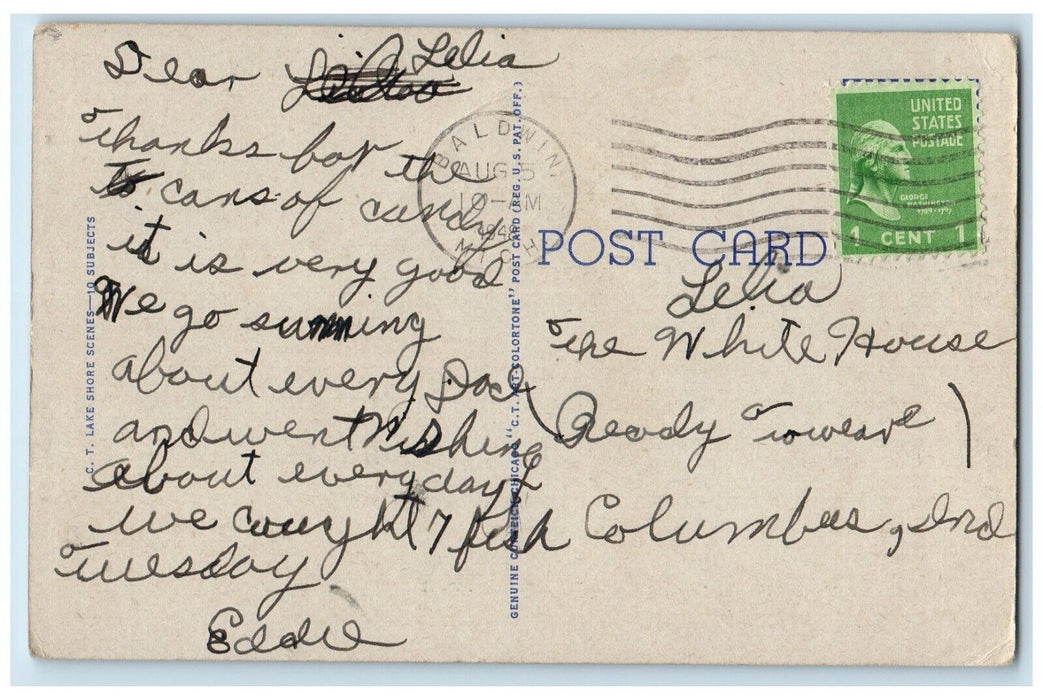 Dear Lelia
Thanks for the
cans of candy
it is very good
We go swimming
about every Day
and went Fishing
about everyday
we caught 7 fish
Tuesday
Eddie
C. T. LAKE SHORE SCENES—10 SUBJECTS
GENUINE CURTEICH-CHICAGO "C.T. ART-COLORTONE" POST CARD (REG. U.S. PAT. OFF.)
BALDWIN
AUG 5
10-AM
1948
MICH
UNITED
STATES
POSTAGE
GEORGE
WASHINGTON
1789-1797
1 CENT 1
POST CARD
Lelia
The White House
(Ready To wear)
Columbus, Ind